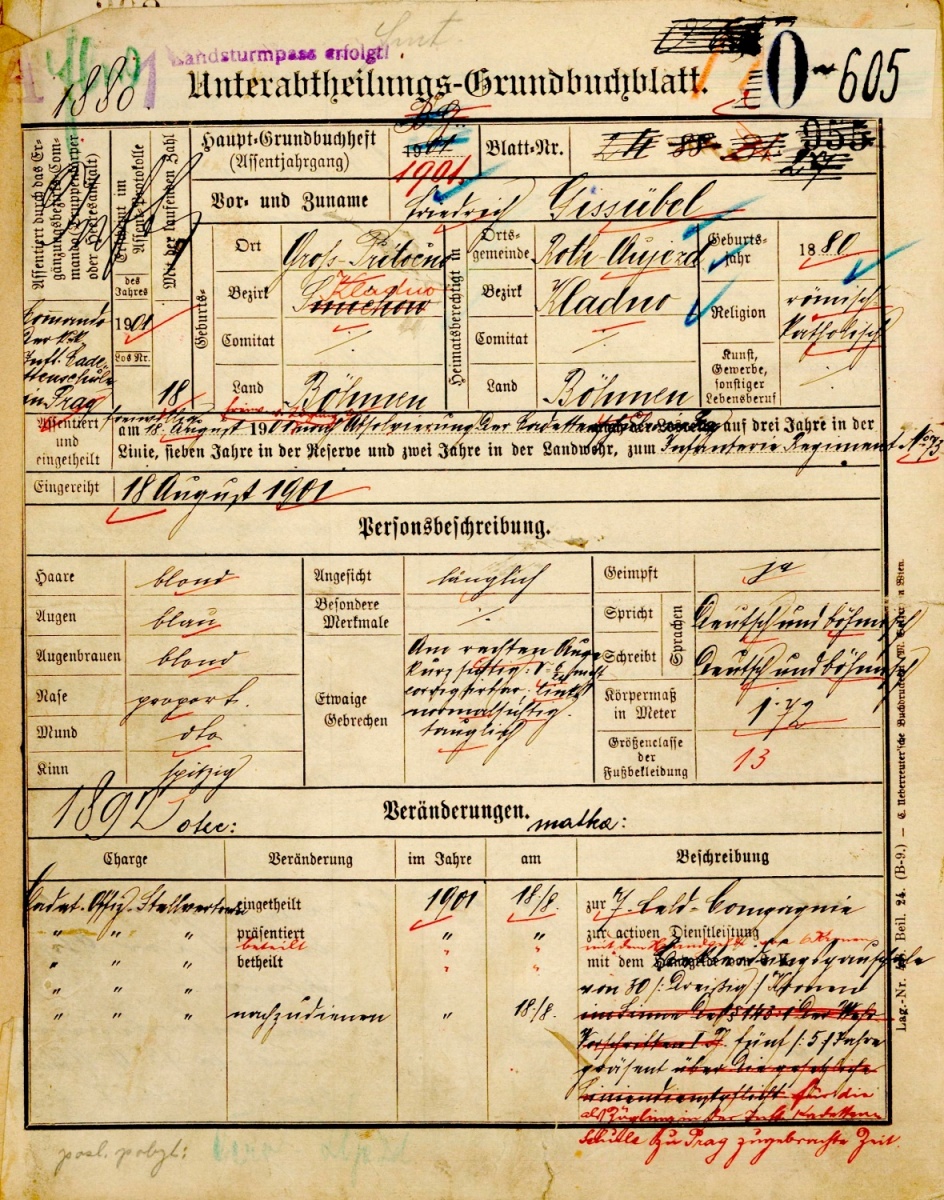 Landsturmpass erfolgt!
1880
Unterabtheilungs-Grundbuchblatt.
O - 605
Assentiert durch das Ergänzungsbezirks-Commando (Truppenkörper oder Heeresanstalt)
Comando der k.k. Inft. Cadettenschule in Prag
Assent-Protokolle
des Jahres
1901
Los Nr.
Mit der laufenden Zahl
18
Haupt-Grundbuchheft
(Assentjahrgang)
1901
1901.
Blatt-Nr.
955
27
Vor- und Zuname
Friedrich Gissübel
Geburts-
Ort
Gross-Přítočno
Bezirk
Kladno
Smichow
Comitat
·/.
Land
Böhmen
Heimatsberechtigt in
Ortsgemeinde
Roth-Aujezd
Bezirk
Kladno
Comitat
·/.
Land
Böhmen
Geburtsjahr
1880
Religion
römisch katholisch
Kunst, Gewerbe, sonstiger Lebensberuf
·/.
Assentiert und eingetheilt
am 18. August 1901 nach Absolvierung der Cadettenschule auf drei Jahre in der
Linie, sieben Jahre in der Reserve und zwei Jahre in der Landwehr, zum Infanterie Regiment No 73
Eingereiht
18 August 1901
Personsbeschreibung.
Haare
blond
Augen
blau
Augenbrauen
blond
Nase
proport.
Mund
dto
Kinn
spitzig
Angesicht
länglich
Besondere Merkmale
·/.
Etwaige Gebrechen
Am rechten Auge
kurzsichtig
corrigirbar. links
normalsichtig.
tauglich
Geimpft
ja
Sprachen
Spricht
Deutsch und böhmisch
Schreibt
Deutsch und böhmisch
Körpermaß in Meter
1·72
Größenclasse der Fußbekleidung
13
Veränderungen.
otec:
matka:
Charge
Veränderung
im Jahre
am
Beschreibung
Cadet-Offiz. Stellvertreter
eingetheilt
1901
18/8.
zur 7. Feld-Compagnie
" " "
präsentiert
"
"
zur activen Dienstleistung
betheilt
" " "
betheilt
"
"
mit dem
" " "
von 30 /: Dreißig :/ Kronen
" " "
nachzudienen
"
18./8.
im Sinne des § 148:1 der Wehr
Vorschriften I. Th. fünf /: 5 :/ Jahre
präsent über die gesetzliche
Liniendienstpflicht für die
als Zögling in der Inft. Kadetten
schule zu Prag zugebrachte Zeit.
posl. pobyt: